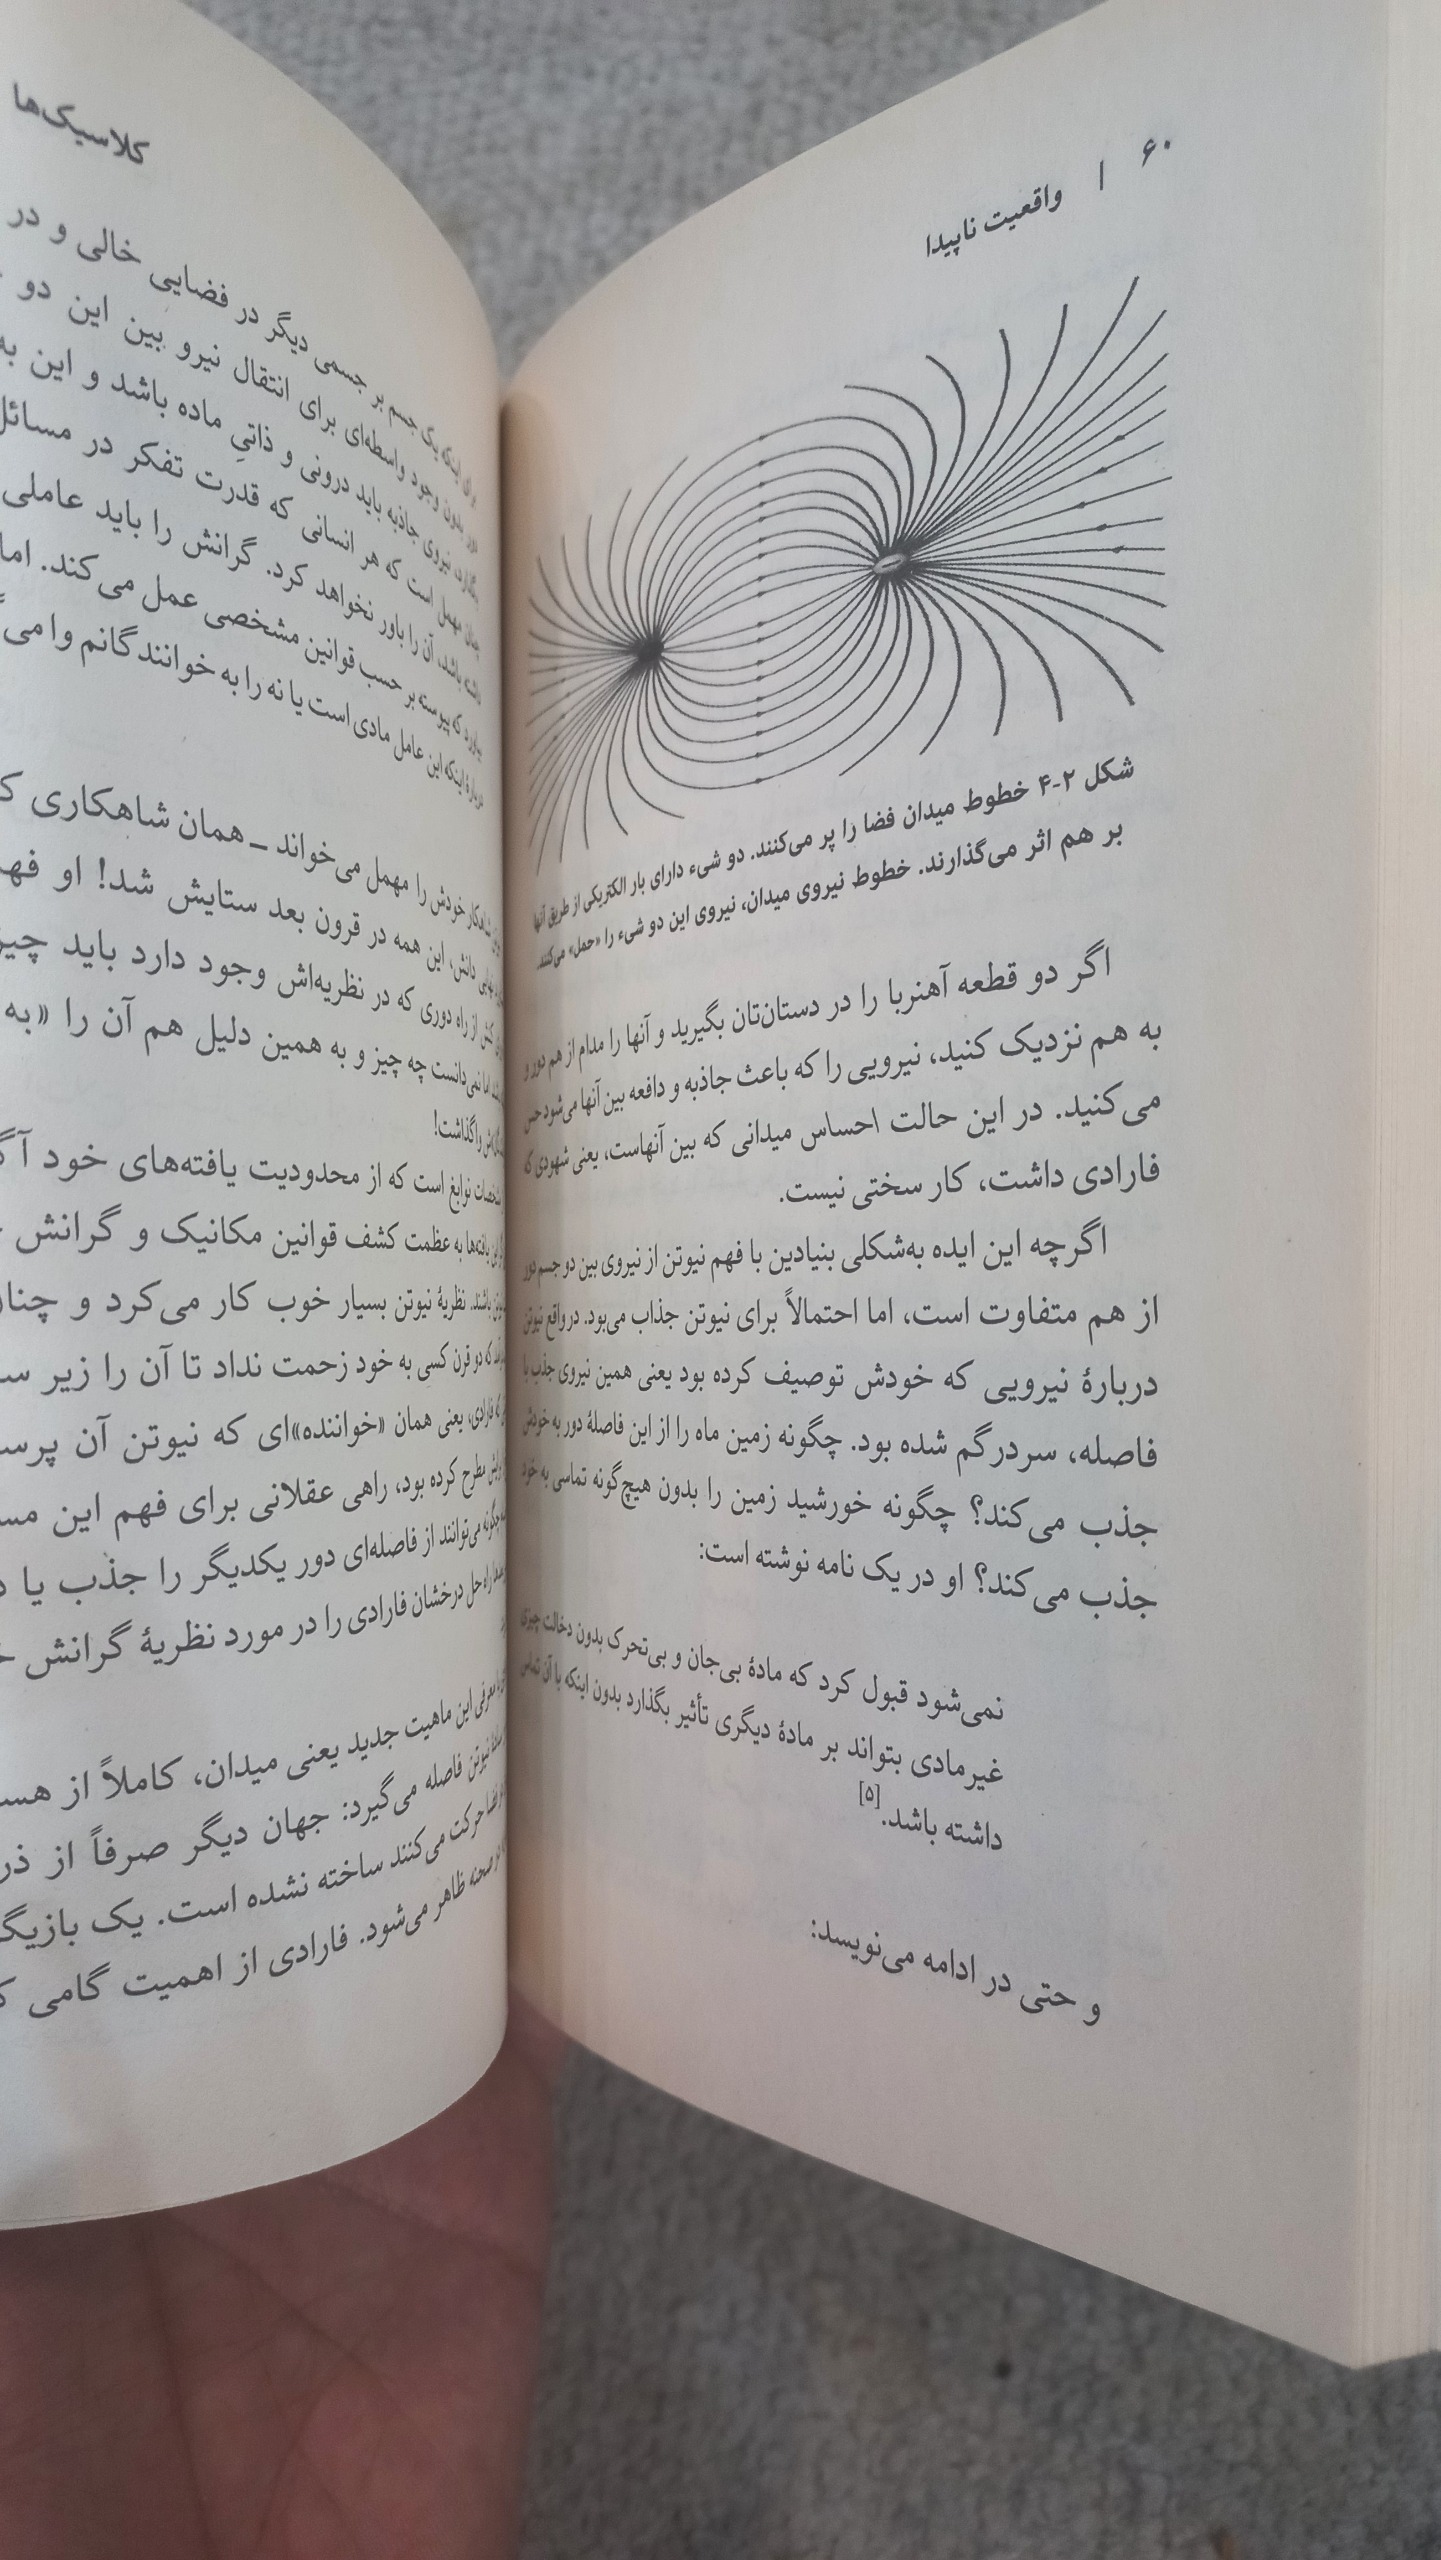 ۶۰ | واقعیت ناپیدا
شکل ۲-۴ خطوط میدان فضا را پر می‌کنند. دو شیء دارای بار الکتریکی از طریق آنها
بر هم اثر می‌گذارند. خطوط نیروی میدان، نیروی این دو شیء را «حمل» می‌کنند.
اگر دو قطعه آهنربا را در دستان‌تان بگیرید و آنها را مدام از هم دور و
به هم نزدیک کنید، نیرویی را که باعث جاذبه و دافعه بین آنها می‌شود حس
می‌کنید. در این حالت احساس میدانی که بین آنهاست، یعنی شهودی که
فارادی داشت، کار سختی نیست.
اگرچه این ایده به‌شکلی بنیادین با فهم نیوتن از نیروی بین دو جسم دور
از هم متفاوت است، اما احتمالاً برای نیوتن جذاب می‌بود. درواقع نیوتن
دربارهٔ نیرویی که خودش توصیف کرده بود یعنی همین نیروی جذب با
فاصله، سردرگم شده بود. چگونه زمین ماه را از این فاصلهٔ دور به خودش
جذب می‌کند؟ چگونه خورشید زمین را بدون هیچ‌گونه تماسی به خود
جذب می‌کند؟ او در یک نامه نوشته است:
نمی‌شود قبول کرد که مادهٔ بی‌جان و بی‌تحرک بدون دخالت چیزی
غیرمادی بتواند بر مادهٔ دیگری تأثیر بگذارد بدون اینکه با آن تماس
داشته باشد.[۵]
و حتی در ادامه می‌نویسد:
کلاسیک‌ها
برای اینکه یک جسم بر جسمی دیگر در فضایی خالی و در
بدون وجود واسطه‌ای برای انتقال نیرو بین این دو
نیروی جاذبه باید درونی و ذاتیِ ماده باشد و این به
چنان مهمل است که هر انسانی که قدرت تفکر در مسائل
داشته باشد، آن را باور نخواهد کرد. گرانش را باید عاملی
که پیوسته بر حسب قوانین مشخصی عمل می‌کند. اما
دربارهٔ اینکه این عامل مادی است یا نه را به خوانندگانم وا می
شاهکار خودش را مهمل می‌خواند ــ همان شاهکاری
دانش، این همه در قرون بعد ستایش شد! او
از راه دوری که در نظریه‌اش وجود دارد باید
اما نمی‌دانست چه چیز و به همین دلیل هم آن را «به
واگذاشت!
نوابغ است که از محدودیت یافته‌های خود
یافته‌ها به عظمت کشف قوانین مکانیک و گرانش
باشند. نظریهٔ نیوتن بسیار خوب کار می‌کرد و
که دو قرن کسی به خود زحمت نداد تا آن را زیر
که فارادی، یعنی همان «خواننده»‌ای که نیوتن آن
مطرح کرده بود، راهی عقلانی برای فهم این
چگونه می‌توانند از فاصله‌ای دور یکدیگر را جذب یا
راه حل درخشان فارادی را در مورد نظریهٔ گرانش
معرفی این ماهیت جدید یعنی میدان، کاملاً از
نیوتن فاصله می‌گیرد: جهان دیگر صرفاً از
حرکت می‌کنند ساخته نشده است. یک
صحنه ظاهر می‌شود. فارادی از اهمیت گامی